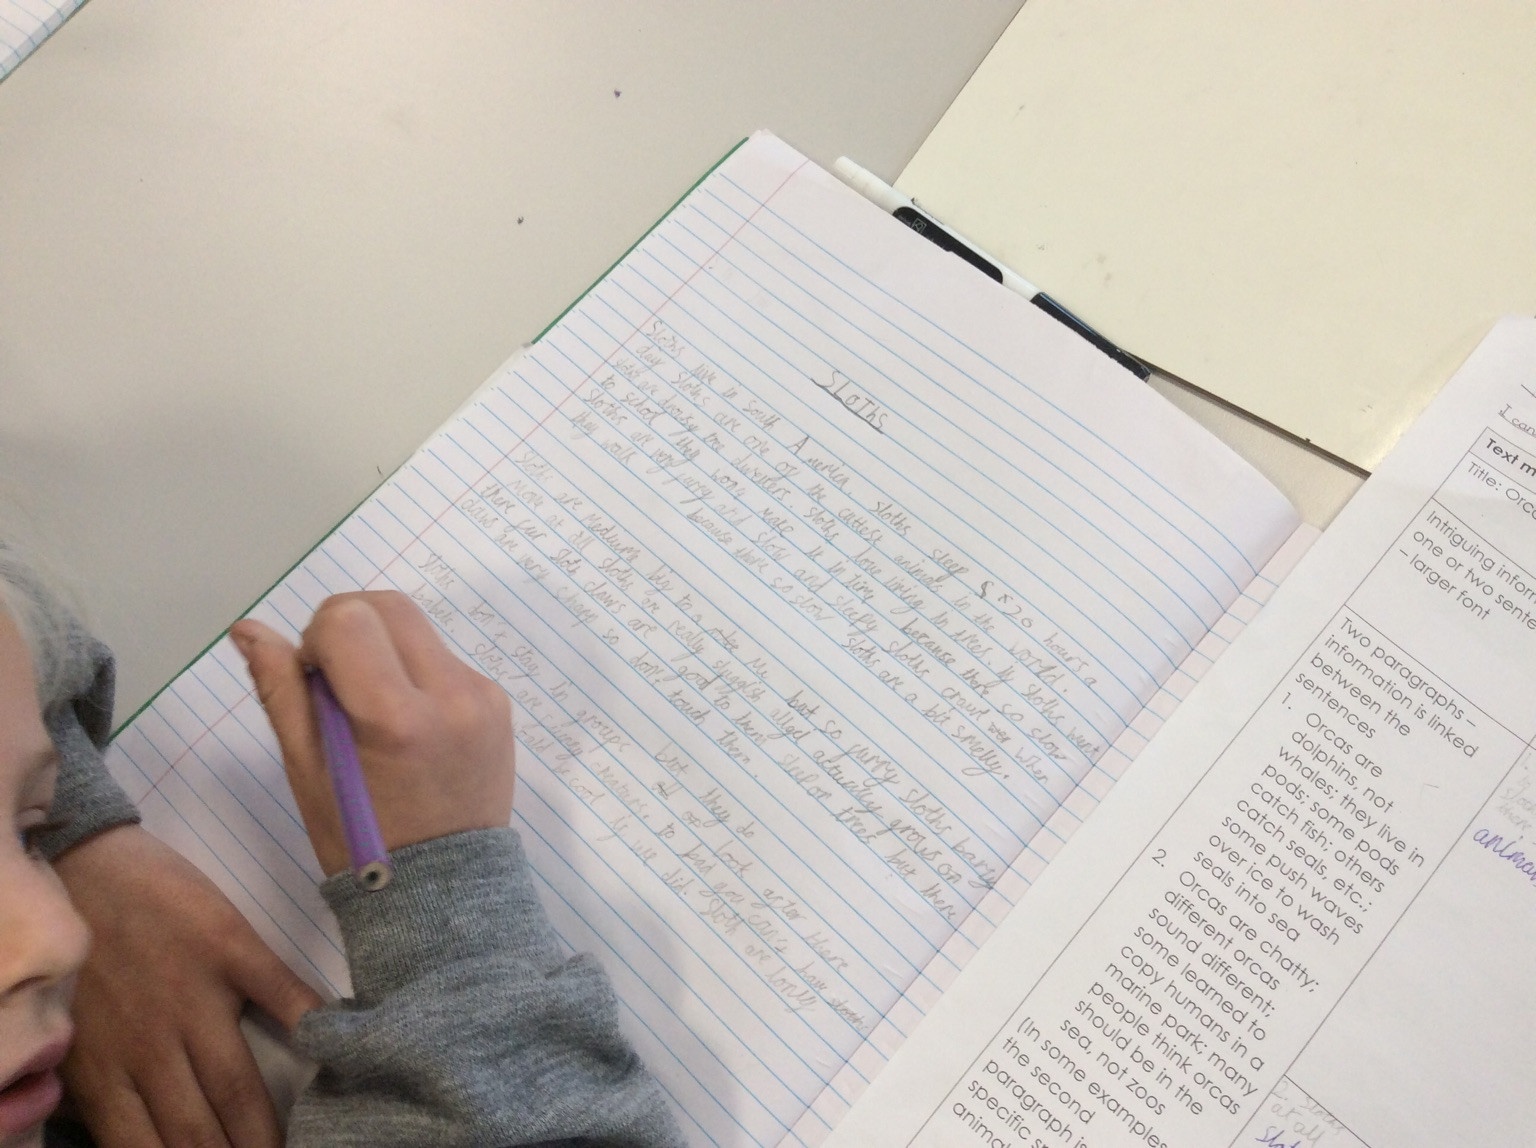 SLOTHS
Sloths live in south America. Sloths sleep 20 hours a
day sloths are one of the cuttest animals in the world.
sloths are drousy tree dwellers. Sloths love living in trees. If sloths went
to school they wont make it in time because there so slow
Sloths are very funny and slow and sleepy sloths crawl when
they walk because there so slow sloths are a bit smelly.
Sloths are medium big to a otter but so furry sloths barry
move at all sloths are really sluggish allgel actually grows on
there fur sloth claws are good to them sleep on trees but there
claws are very sharp so dont touch them.
Sloths don't stay in groups but they do look after there
babies. Sloths are lively creatures. to bad you can't have sloths
be cool if we did. sloth are lonly
I can
Text m
Title: Orca
Intriguing inform
one or two sente
– larger font
Two paragraphs –
information is linked
between the
sentences
1. Orcas are
dolphins, not
whales; they live in
pods; some pods
catch fish; others
catch seals, etc.;
some push waves
over ice to wash
seals into sea
2. Orcas are chatty;
different orcas
sound different;
some learned to
copy humans in a
marine park; many
people think orcas
should be in the
sea, not zoos
(In some examples
the second
paragraph is
specific s
anima
animal
at all